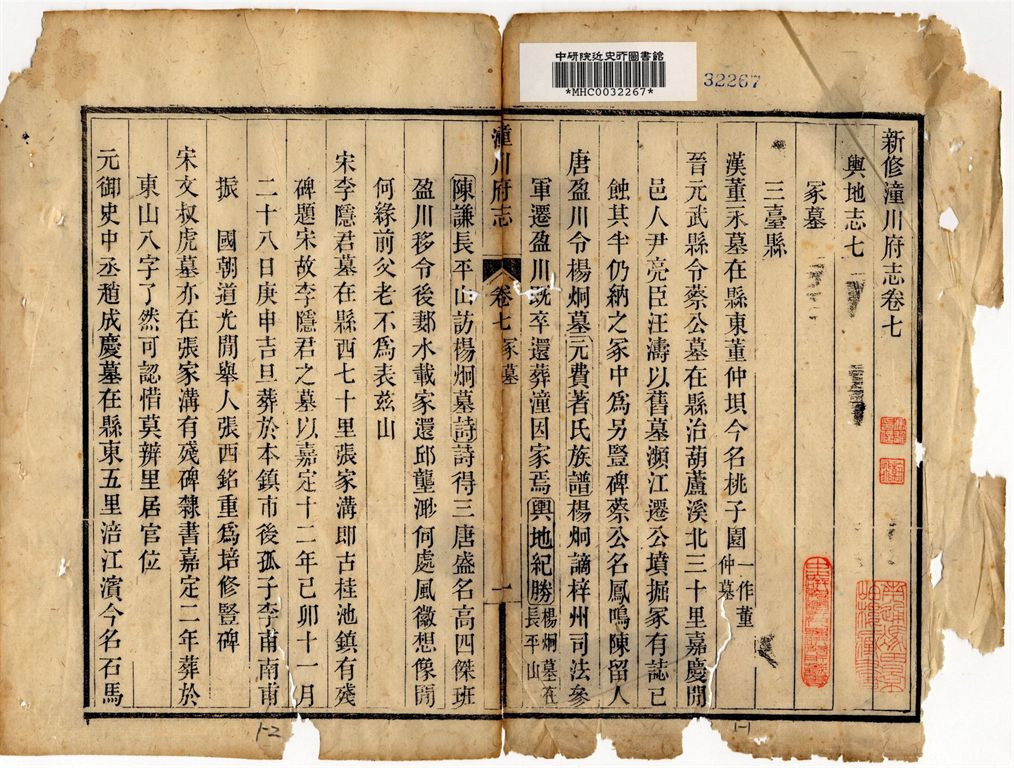 中研院近史所圖書館
*MHC0032267*
32267
新修潼川府志卷七
輿地志七
冢墓
三臺縣
漢董永墓在縣東董仲垻今名桃子園一作董仲墓
晉元武縣令蔡公墓在縣治葫蘆溪北三十里嘉慶間
邑人尹亮臣汪濤以舊墓瀕江遷公墳掘冢有誌已
蝕其半仍納之冢中為另豎碑蔡公名鳳鳴陳留人
唐盈川令楊炯墓元費著氏族譜楊炯謫梓州司法參
軍遷盈川旣卒還葬潼因家焉輿地紀勝楊炯墓在長平山
潼川府志
卷七
冢墓
一
陳謙長平山訪楊炯墓詩詩得三唐盛名高四傑班
盈川移令後鄴水載家還邱壟渺何處風徽想像間
何緣前父老不為表兹山
宋李隱君墓在縣西七十里張家溝即古桂池鎮有殘
碑題宋故李隱君之墓以嘉定十二年己卯十一月
二十八日庚申吉旦葬於本鎮市後孤子李甫南甫
振 國朝道光間舉人張西銘重為培修豎碑
宋文叔虎墓亦在張家溝有殘碑隸書嘉定二年葬於
東山八字了然可認惜莫辨里居官位
元御史中丞趙成慶墓在縣東五里涪江濱今名石馬
1-1
1-2